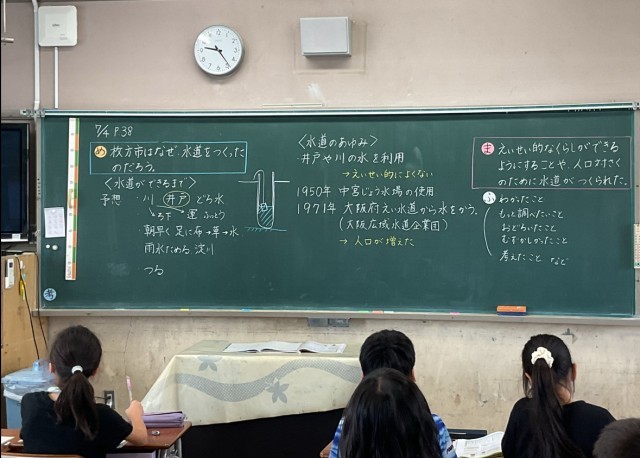 7/4 P.38
め 枚方市はなぜ、水道をつくった
のだろう。
〈水道ができるまで〉
予想 川 井戸 どろ水
ろす 運 ふっとう
朝早く足に布→草→水
雨水ためる、淀川
つる
考
〈水道のあゆみ〉
井戸や川の水を利用
→えいせい的によくない
1950年 中宮じょう水場の使用.
1971年 大阪府えい水道から水をかう。
(大阪広域水道企業団)
→ 人口が増えた
ま えいせい的なくらしができる
ようにすることや、人口
のために水道がつくられた。
ふ わかったこと
もっと調べたいこと
おどろいたこと
むずかしかったこと
考えたこと など